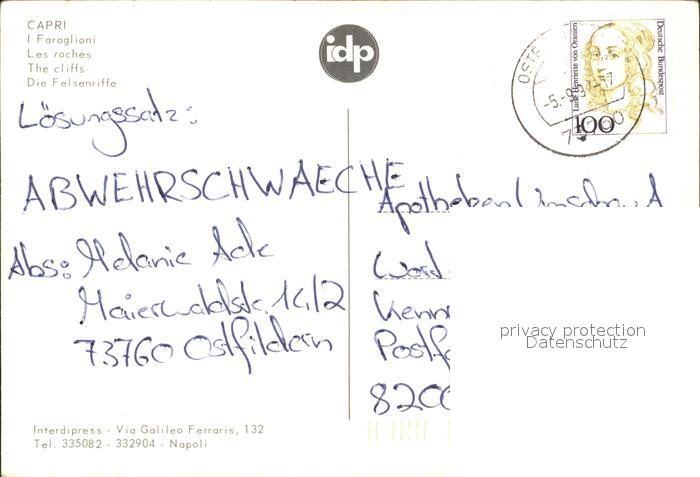 CAPRI
I Faraglioni
Les roches
The cliffs
Die Felsenriffe
idp
Deutsche Bundespost
Luise Henriette von Oranien
100
Lösungssatz:
ABWEHRSCHWAECHE
Abs: Melanie
73760 Ostfildern
Postf
8200
privacy protection
Datenschutz
Interdipress - Via Galileo Ferraris, 132
Tel. 335082 - 332904 - Napoli